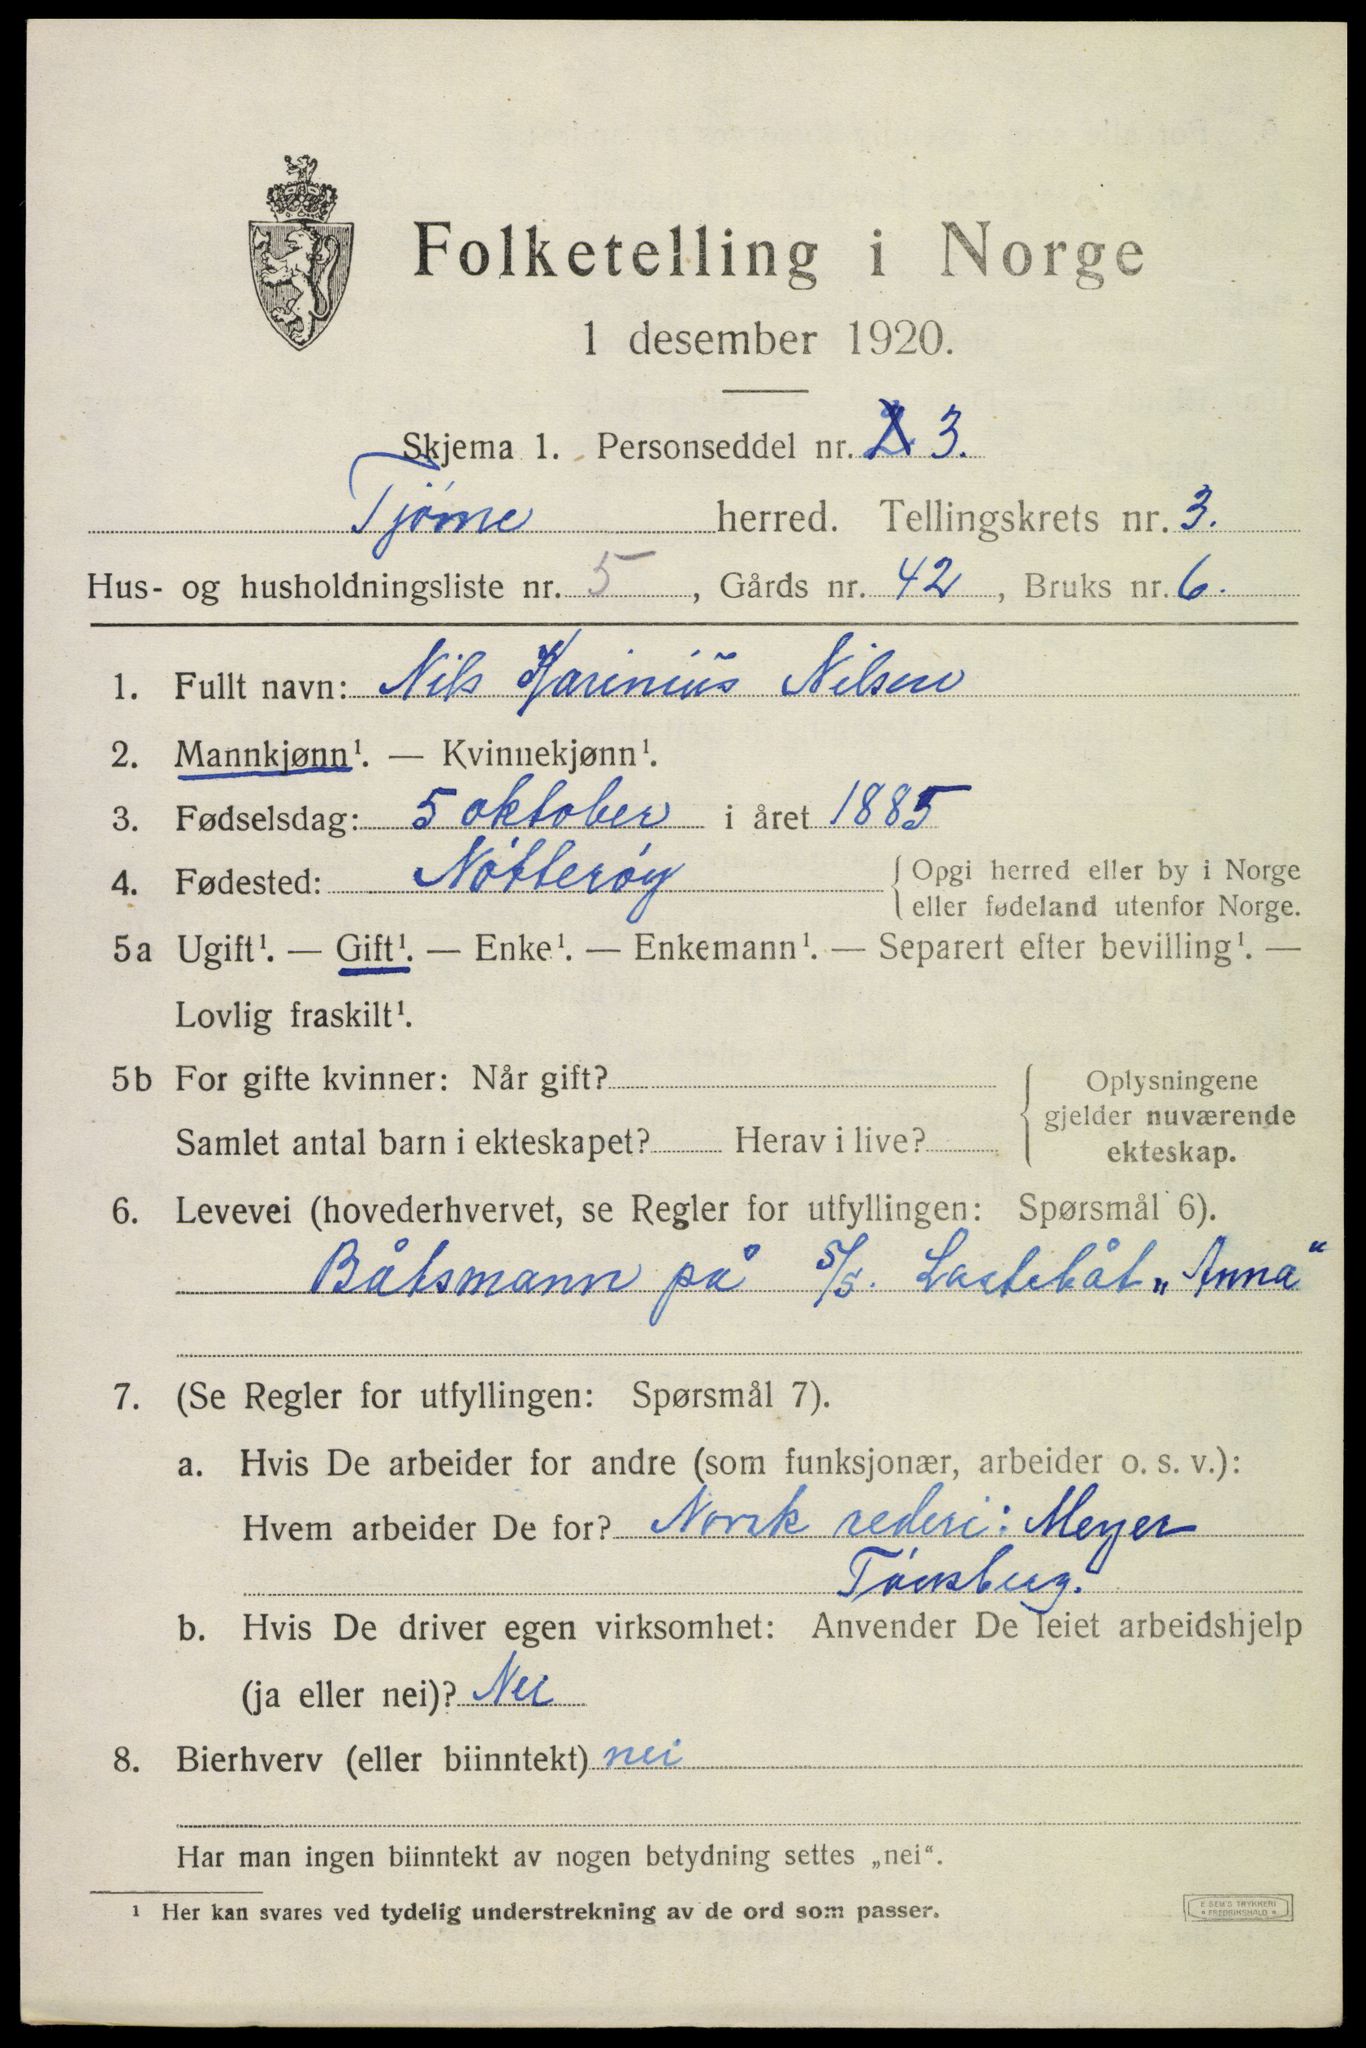 Folketelling i Norge
1 desember 1920.
Skjema 1. Personseddel nr. 2 3.
Tjøme herred. Tellingskrets nr. 3.
Hus- og husholdningsliste nr. 5, Gårds nr. 42, Bruks nr. 6.
1. Fullt navn: Nils Karinius Nilsen
2. Mannkjønn¹. — Kvinnekjønn¹.
3. Fødselsdag: 5 oktober i året 1885
4. Fødested: Nøtterøy { Opgi herred eller by i Norge
eller fødeland utenfor Norge.
5a Ugift¹. — Gift¹. — Enke¹. — Enkemann¹. — Separert efter bevilling¹. —
Lovlig fraskilt¹.
5b For gifte kvinner: Når gift?
Samlet antal barn i ekteskapet? Herav i live?
Oplysningene
gjelder nuværende
ekteskap.
6. Levevei (hovederhvervet, se Regler for utfyllingen: Spørsmål 6).
Båtsmann på S/S. Lastebåt „Anna“
7. (Se Regler for utfyllingen: Spørsmål 7).
a. Hvis De arbeider for andre (som funksjonær, arbeider o. s. v.):
Hvem arbeider De for? Norsk rederi: Meyer
Tønsberg.
b. Hvis De driver egen virksomhet: Anvender De leiet arbeidshjelp
(ja eller nei)? Nei
8. Bierhverv (eller biinntekt) nei
Har man ingen biinntekt av nogen betydning settes „nei“.
¹ Her kan svares ved tydelig understrekning av de ord som passer.
E SEM'S TRYKKERI
* FREDRIKSHALD *